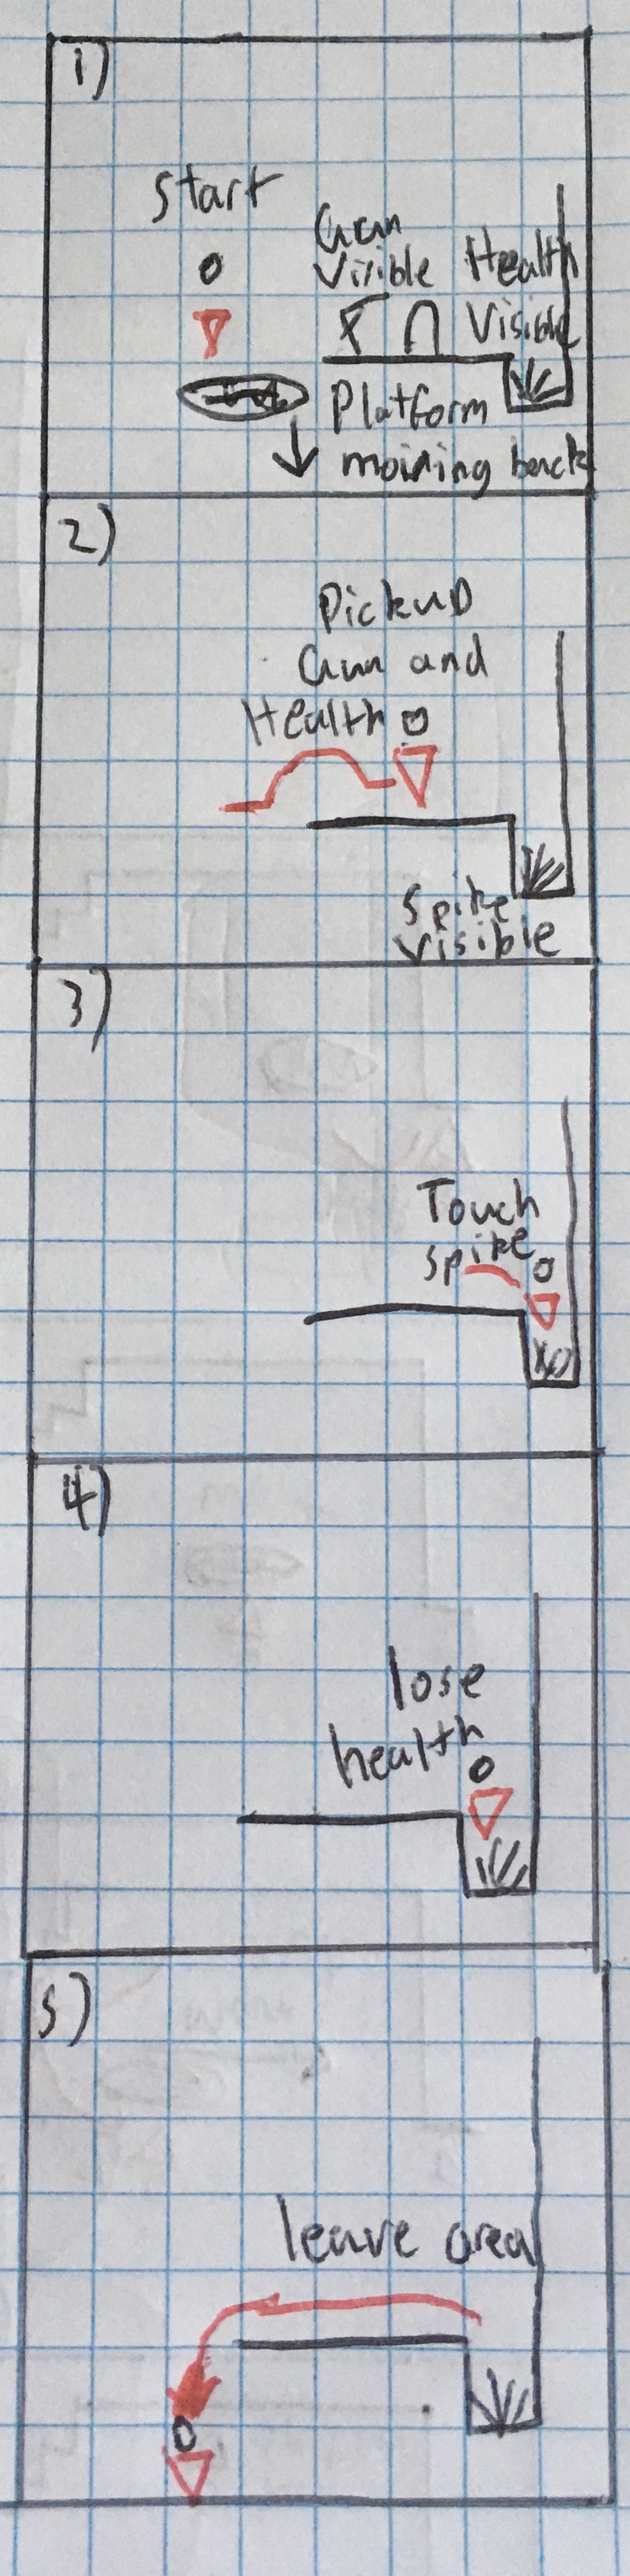 1)
start
Gun
Visible
Health
Visible
Platform
moining back
2)
Pickup
Gun and
Health
Spike
Visible
3)
Touch
spike
4)
lose
health
5)
leave area